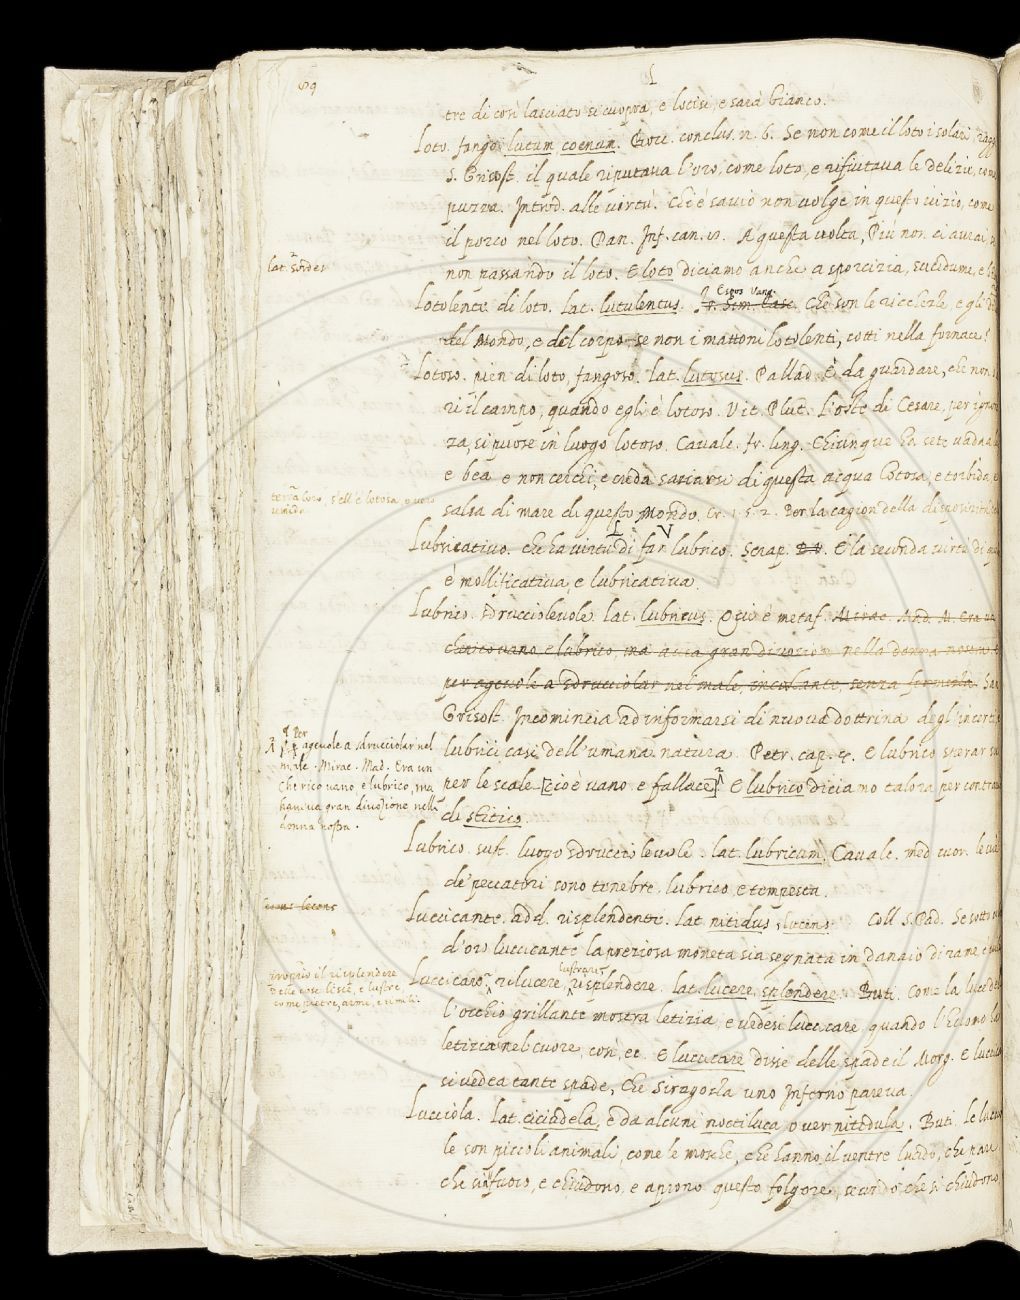 L
tre di così lasciato si cuopra, e locisi, e sarà bianco.
Loto. fango. lutum coenum. Bocc. conclus. n. 6. Se non come il loto i solari
S. Grisost. il quale riputaua l'oro, come loto, e rifiutaua le delizie, come
puzza. Introd. alle virtù. Chi è sauio non volge in questo vizio, come
il porco nel loto. Dan. Inf. can. A questa volta, Più non ci aurai
lat. sordes
non passando il loto. E loto diciamo anche a sporcizia, sucidume, e
Espos. Vang.
Lotolente. di loto. lat. lutulentus. Fr. Sim. Casc. Che son le ricchezze, e gli
del Mondo, e del corpo, se non i mattoni lotolenti, cotti nella fornace?
Lotoso. pien di loto, fangoso. lat. lutosus. Pallad. E da guardare, che non
ri il campo, quando egli è lotoso. Vit. Plut. L'oste di Cesare, per ignoran
za, si puose in luogo lotoso. Caualc. fr. ling. Chiunque ha sete vadna
e bea, e non cerchi, e creda saziarsi di questa acqua lotosa, e torbida, e
terra loto, s'ell'è lotosa, o uero
umida
salsa di mare di questo Mondo. Cr. 1. 5. 2. Per la cagion della disposizion
L V
Lubricatiuo. che ha virtù di far lubrico. Serap. E la seconda virtù di
è mollificatiua, e lubricatiua.
Lubrico. sdruccioleuole. lat. lubricus. Qui è metaf. Mirac. Mad. M. Era un
cherico vano, e lubrico, ma auea gran diuozione nella donna nostra
per ageuole a sdrucciolar nel male, incostante, senza fermezza. San
Grisost. Incomincia ad informarsi di nuoua dottrina degl'incerti
¶ Per
ageuole a sdrucciolar nel
male. Mirac. Mad. Era un
Cherico uano, e lubrico, ma
haueua gran diuozione nella
donna nostra.
lubrici casi dell'umana natura. Petr. cap. 4. E lubrico sperar su
per le scale. [cioè uano, e fallace] E lubrico diciamo talora per contrario
di stitico.
Lubrico. sust. luogo sdruccioleuole. lat. lubricum. Caualc. med. cuor. le vie
de' peccatori sono tenebre, lubrico, e tempesta.
Luccicante. add. risplendente. lat. nitidus, lucens. Coll. S. Pad. Se sotto
d'oro luccicante la preziosa moneta sia segnata in danaio di rame, e
proprio il risplendere
delle cose liscie, e lustre,
come pietre, armi, e simili.
lustrare
Luccicare. rilucere, risplendere. lat. lucere, splendere. Buti. Come la luce del
l'occhio grillante mostra letizia, e uedesi luccicare, quando l'huomo ha
letizia nel cuore, così, ec. E luccicare disse delle spade il Morg. E luccicar
si vedea tante spade, Che Siragozza uno Inferno pareua.
Lucciola. lat. cicindela, e da alcuni noctiluca, o ver nitedula. Buti. le luccio
le son piccoli animali, come le mosche, che hanno il uentre lucido, che pare
che sia fuoco, e chiudono, e aprono questo folgore, secondo che si chiudono